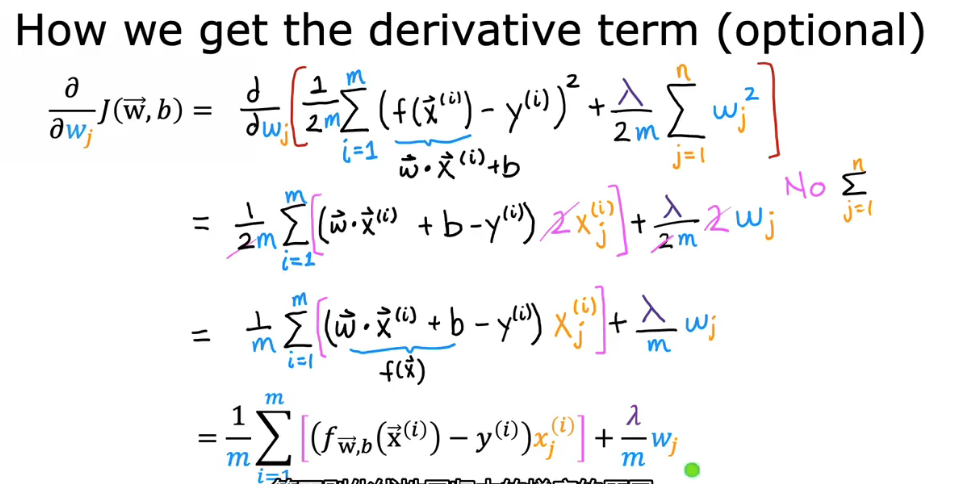 How we get the derivative term (optional)
∂/∂wⱼ J(w⃗, b) = d/dwⱼ [ 1/2m Σ_{i=1}^{m} (f(x⃗⁽ⁱ⁾) − y⁽ⁱ⁾)² + λ/2m Σ_{j=1}^{n} wⱼ² ]
w⃗ · x⃗⁽ⁱ⁾ + b
No Σ_{j=1}^{n}
= 1/2m Σ_{i=1}^{m} [ (w⃗ · x⃗⁽ⁱ⁾ + b − y⁽ⁱ⁾) 2 xⱼ⁽ⁱ⁾ ] + λ/2m 2 wⱼ
= 1/m Σ_{i=1}^{m} [ (w⃗ · x⃗⁽ⁱ⁾ + b − y⁽ⁱ⁾) xⱼ⁽ⁱ⁾ ] + λ/m wⱼ
f(x⃗)
= 1/m Σ_{i=1}^{m} [ (f_{w⃗,b}(x⃗⁽ⁱ⁾) − y⁽ⁱ⁾) xⱼ⁽ⁱ⁾ ] + λ/m wⱼ